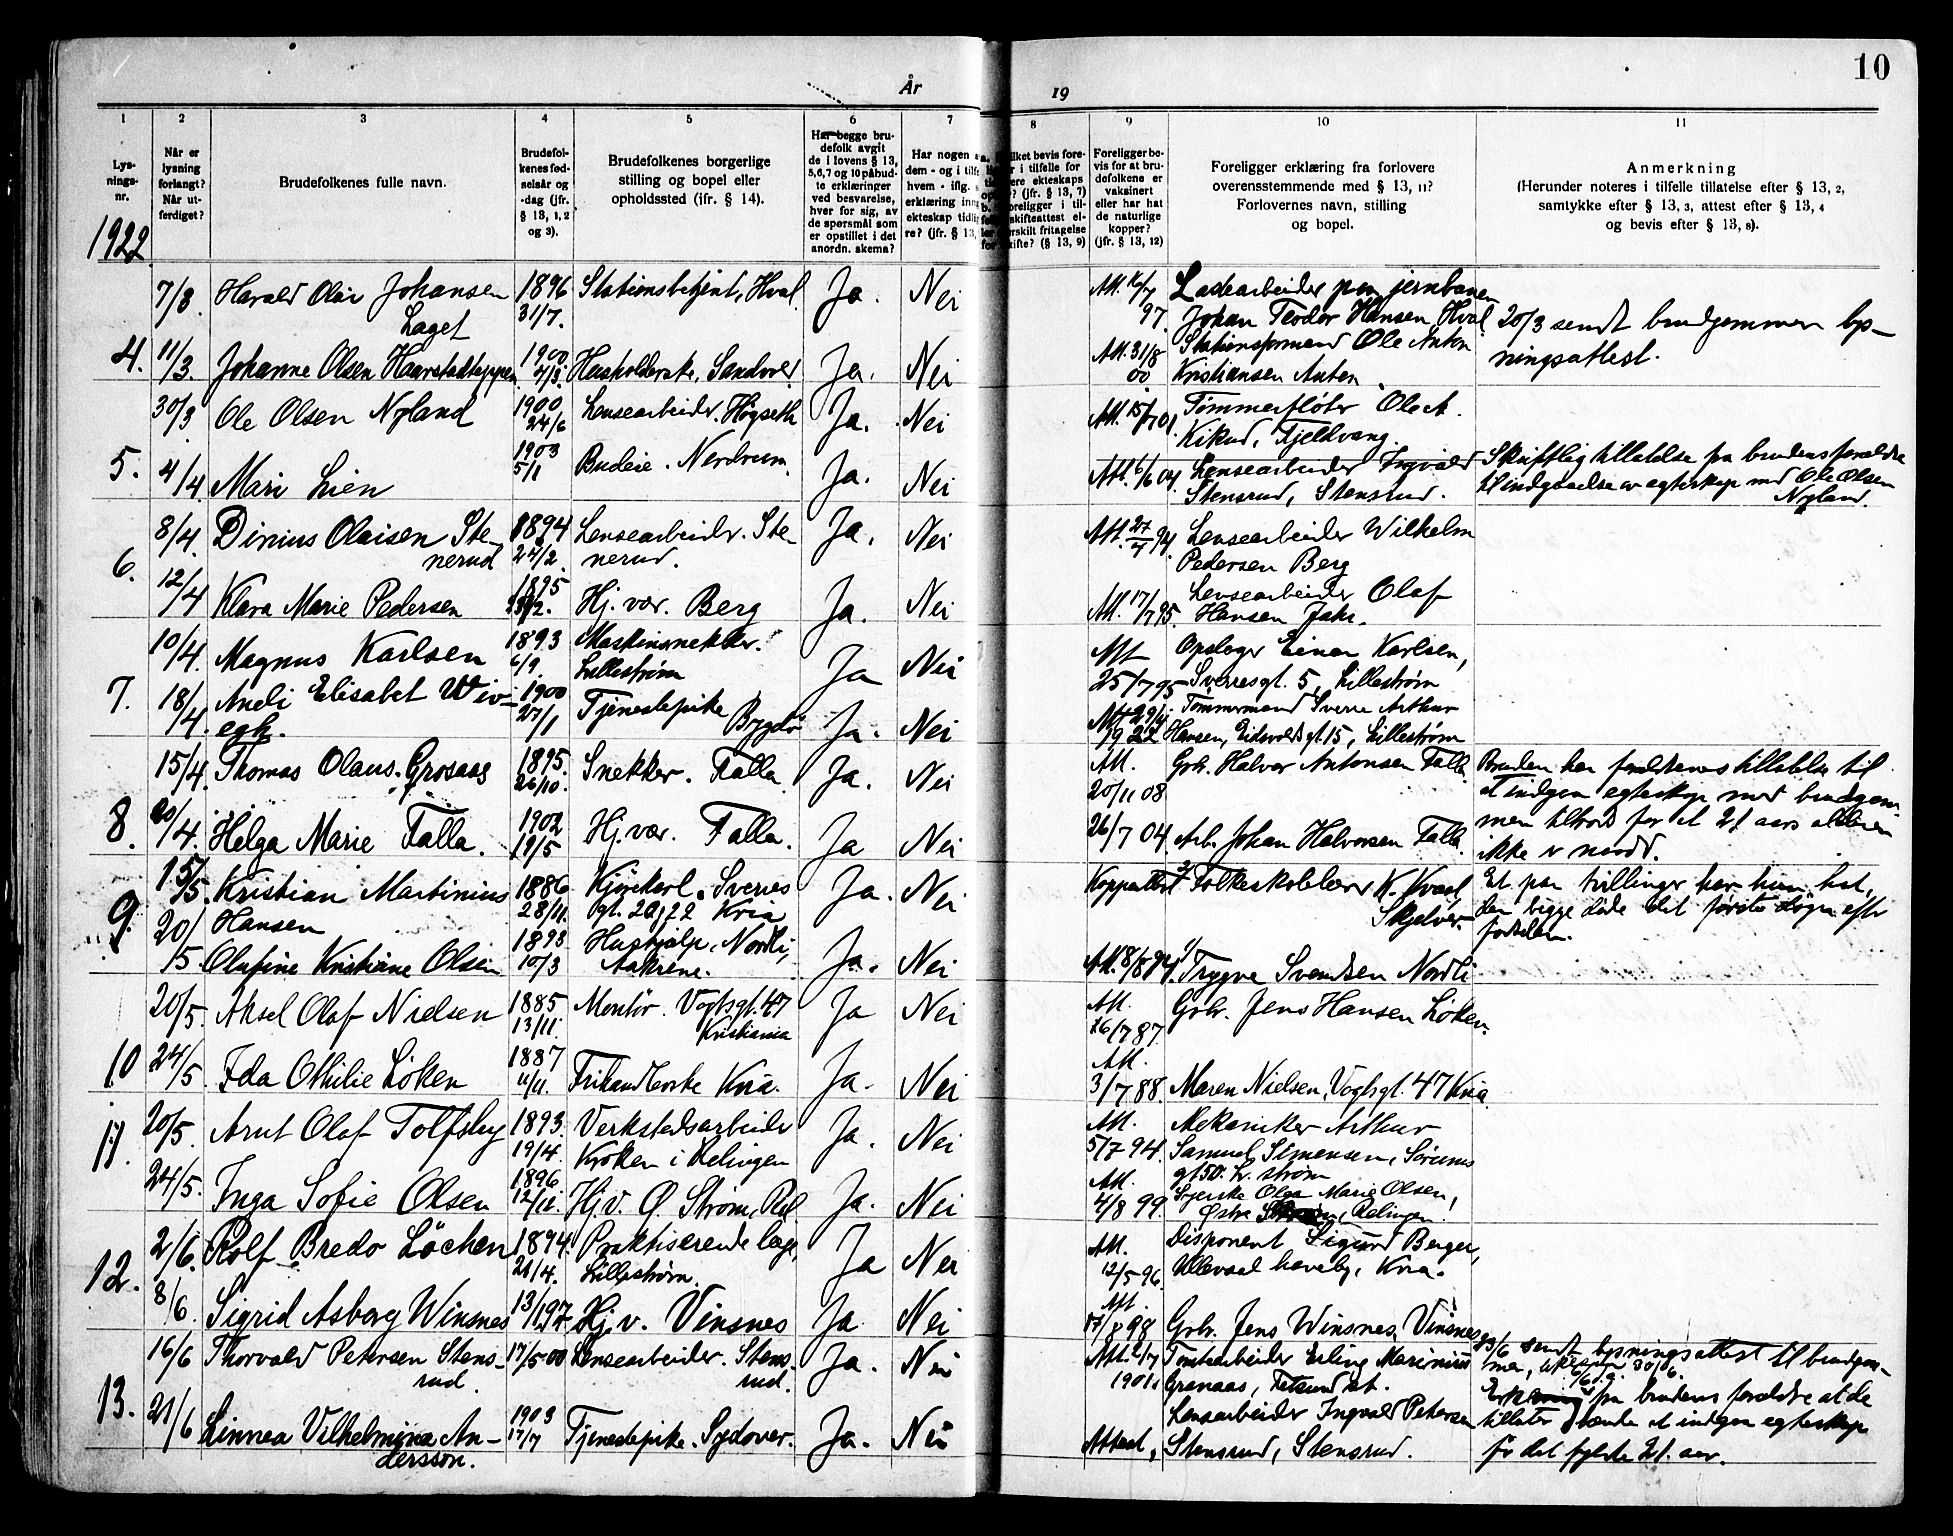 10
År
19
1
2
3
4
5
6
7
8
9
10
11
Lys-
nings-
nr.
Når er
lysning
forlangt?
Når ut-
ferdiget?
Brudefolkenes fulle navn.
Brudefol-
kenes fød-
selsår og
-dag (jfr.
§ 13, 1, 2
og 3).
Brudefolkenes borgerlige
stilling og bopel eller
opholdssted (jfr. § 14).
Har begge bru-
defolk avgit
de i lovens § 13,
5,6,7 og 10 påbud-
te erklæringer
ved besvarelse,
hver for sig, av
de spørsmål som
er opstillet i det
anordn. skema?
Har nogen a
dem - og i tilfe
hvem - iflg.
erklæring inng
ekteskap tidlig
re? (jfr. § 13,
lket bevis fore-
r i tilfelle for
ere ekteskaps
? (jfr. § 13, 7)
oreligger i til-
skifteattest el-
ærskilt fritagelse
kifte? (§ 13, 9)
Foreligger be-
vis for at bru-
defolkene er
vaksinert
eller har hat
de naturlige
kopper?
(jfr. § 13, 12)
Foreligger erklæring fra forlovere
overensstemmende med § 13, 11?
Forlovernes navn, stilling
og bopel.
Anmerkning
(Herunder noteres i tilfelle tillatelse efter § 13, 2,
samtykke efter § 13, 3, attest efter § 13, 4
og bevis efter § 13, 8).
1922
7/3 Harald Olav Johansen 1896 Stationsbetjent, Hval Ja. Nei
Laget 31/7.
Att.
97 Ladearbeider paa jernbanen
Johan Teodor Hansen Hval
20/3 sendt brudgommen lys-
ningsattest.
4. 11/3. Johanne Olsen 1900 Husholderske, Ja. Nei
Att. 31/8 Stationsformand Ole Anton
00 Kristiansen
30/3 Ole Olsen Nyland 1900 Lensearbeider. Høgseth Ja. Nei
24/6
Att. 15/7 01. Tømmerfløter Ole A.
Kikud, Fjeldvang.
5. 4/4 Mari Lien 1903 Budeie. Nerdrum. Ja. Nei
5/1
Att. 6/6 04. Lensearbeider Ingvald
Stensrud, Stensrud.
Skriftlig tillatelse fra brudens forældre
til indgaaelse av egteskap med Ole Olsen
Nyland.
8/4. Dinius Olaisen Ste- 1894 Lensearbeider. Ste- Ja. Nei
nerud 24/2. nerud.
Att. 27/4 94. Lensearbeider Wilhelm
Pedersen Berg
6. 12/4 Klara Marie Pedersen 1895 Hj. vær. Berg Ja. Nei
Att. 17/7 95. Lensearbeider Olaf
Hansen
10/4. Magnus Karlsen 1893 Maskinsnekker. Ja Nei
6/9. Lillestrøm
Att Opsager Einar Karlsen,
25/7 95 Sverresgt. 5, Lillestrøm
7. 18/4. Elisabet Wiv- 1900 Tjenestepike Ja. Nei
egh. 27/1 Bygdø
Att 29/4 Tømmermand Sverre Arthur
1922 Hansen, Eidsvoldsgt. 15, Lillestrøm
15/4. Thomas Olaus. Grosaas 1895. Snekker. Falla Ja. Nei
26/10.
Att. Grb. Halvor Antonsen Falla
20/11 08
Bruden har forældrenes tillatelse til
at indgaa egteskap med brudgom-
men tiltrods for at 21 aars alderen
ikke er naadd.
8. 20/4. Helga Marie Falla. 1902 Hj. vær. Falla. Ja Nei
19/5
26/7 04. Arb. Johan Halvorsen Falla
15/5. Kristian Martinius 1886 Kjørekarl. Sverres Ja. Nei
Hansen 28/11. gt. 20, 22 Kria
Koppattest Folkeskolelærer K. Kvaal,
Skjelver.
Et par tvillinger har hun hat,
den begge døde det første døgn efter
fødselen.
9. 20/5. Olufine Kristiane Olsen 1893 Hushjælp, Nordli, Ja. Nei
10/3 Aakrene.
Att. 8/8 94. Trygve Svendsen Nordli
20/5. Aksel Olaf Nielsen 1885 Montør. Vogtsgt. 47 Ja Nei
13/11. Kristiania
Att. Grbr. Jens Hansen Løken.
26/7 87
10 24/5. Ida Othilie Løken 1887 Ja. Nei
11/11. Kria.
Att.
3/7 88 Maren Nielsen, Vogtsgt. 47 Kria
11. 20/5. Arnt Olaf Tolfsby 1893. Verkstedsarbeider Ja. Nei
19/4. Kroken i Relingen
Att. Mekaniker Arthur
5/7 94. Samuel Simensen, Sørums
gt 50. L. strøm
24/5. Inga Sofie Olsen 1896 Hj. v. Ø. Strøm, Rel. Ja. Nei
12/11.
Att. Syerske Olga Marie Olsen,
4/8 99 Østre Strøm, Relingen.
2/6. Rolf Bredo Løchen 1894. Praktiserende læge, Ja Nei
21/4. Lillestrøm.
Att. Disponent Sigurd Berger,
12/5 96 Ullevaal haveby, Kria.
12. 8/6 Sigrid Asborg Winsnes 13/1 97 Hj. v. Vinsnes Ja Nei
Att.
17/8 98 Grbr. Jens Winsnes, Vinsnes
16/6 Thorvald Petersen Stens- 17/5 00 Lensearbeider. Stens- Ja. Nei
rud. rud.
Att. Tomtearbeider Erling Marinius
1901. Granaas, Fetsund st.
23/6 sendt lysningsattest til brudgom-
men,
13. 21/6 Linnea Vilhelmina An- 1903 Tjenestepike. Sydover. Ja. Nei
dersson. 17/7
Attest, Lensearbeider Ingvald Petersen
Stensrud, Stensrud.
fra brudens forældre at de
tillater at indgaa egteskap
før det fylte 21. aar.